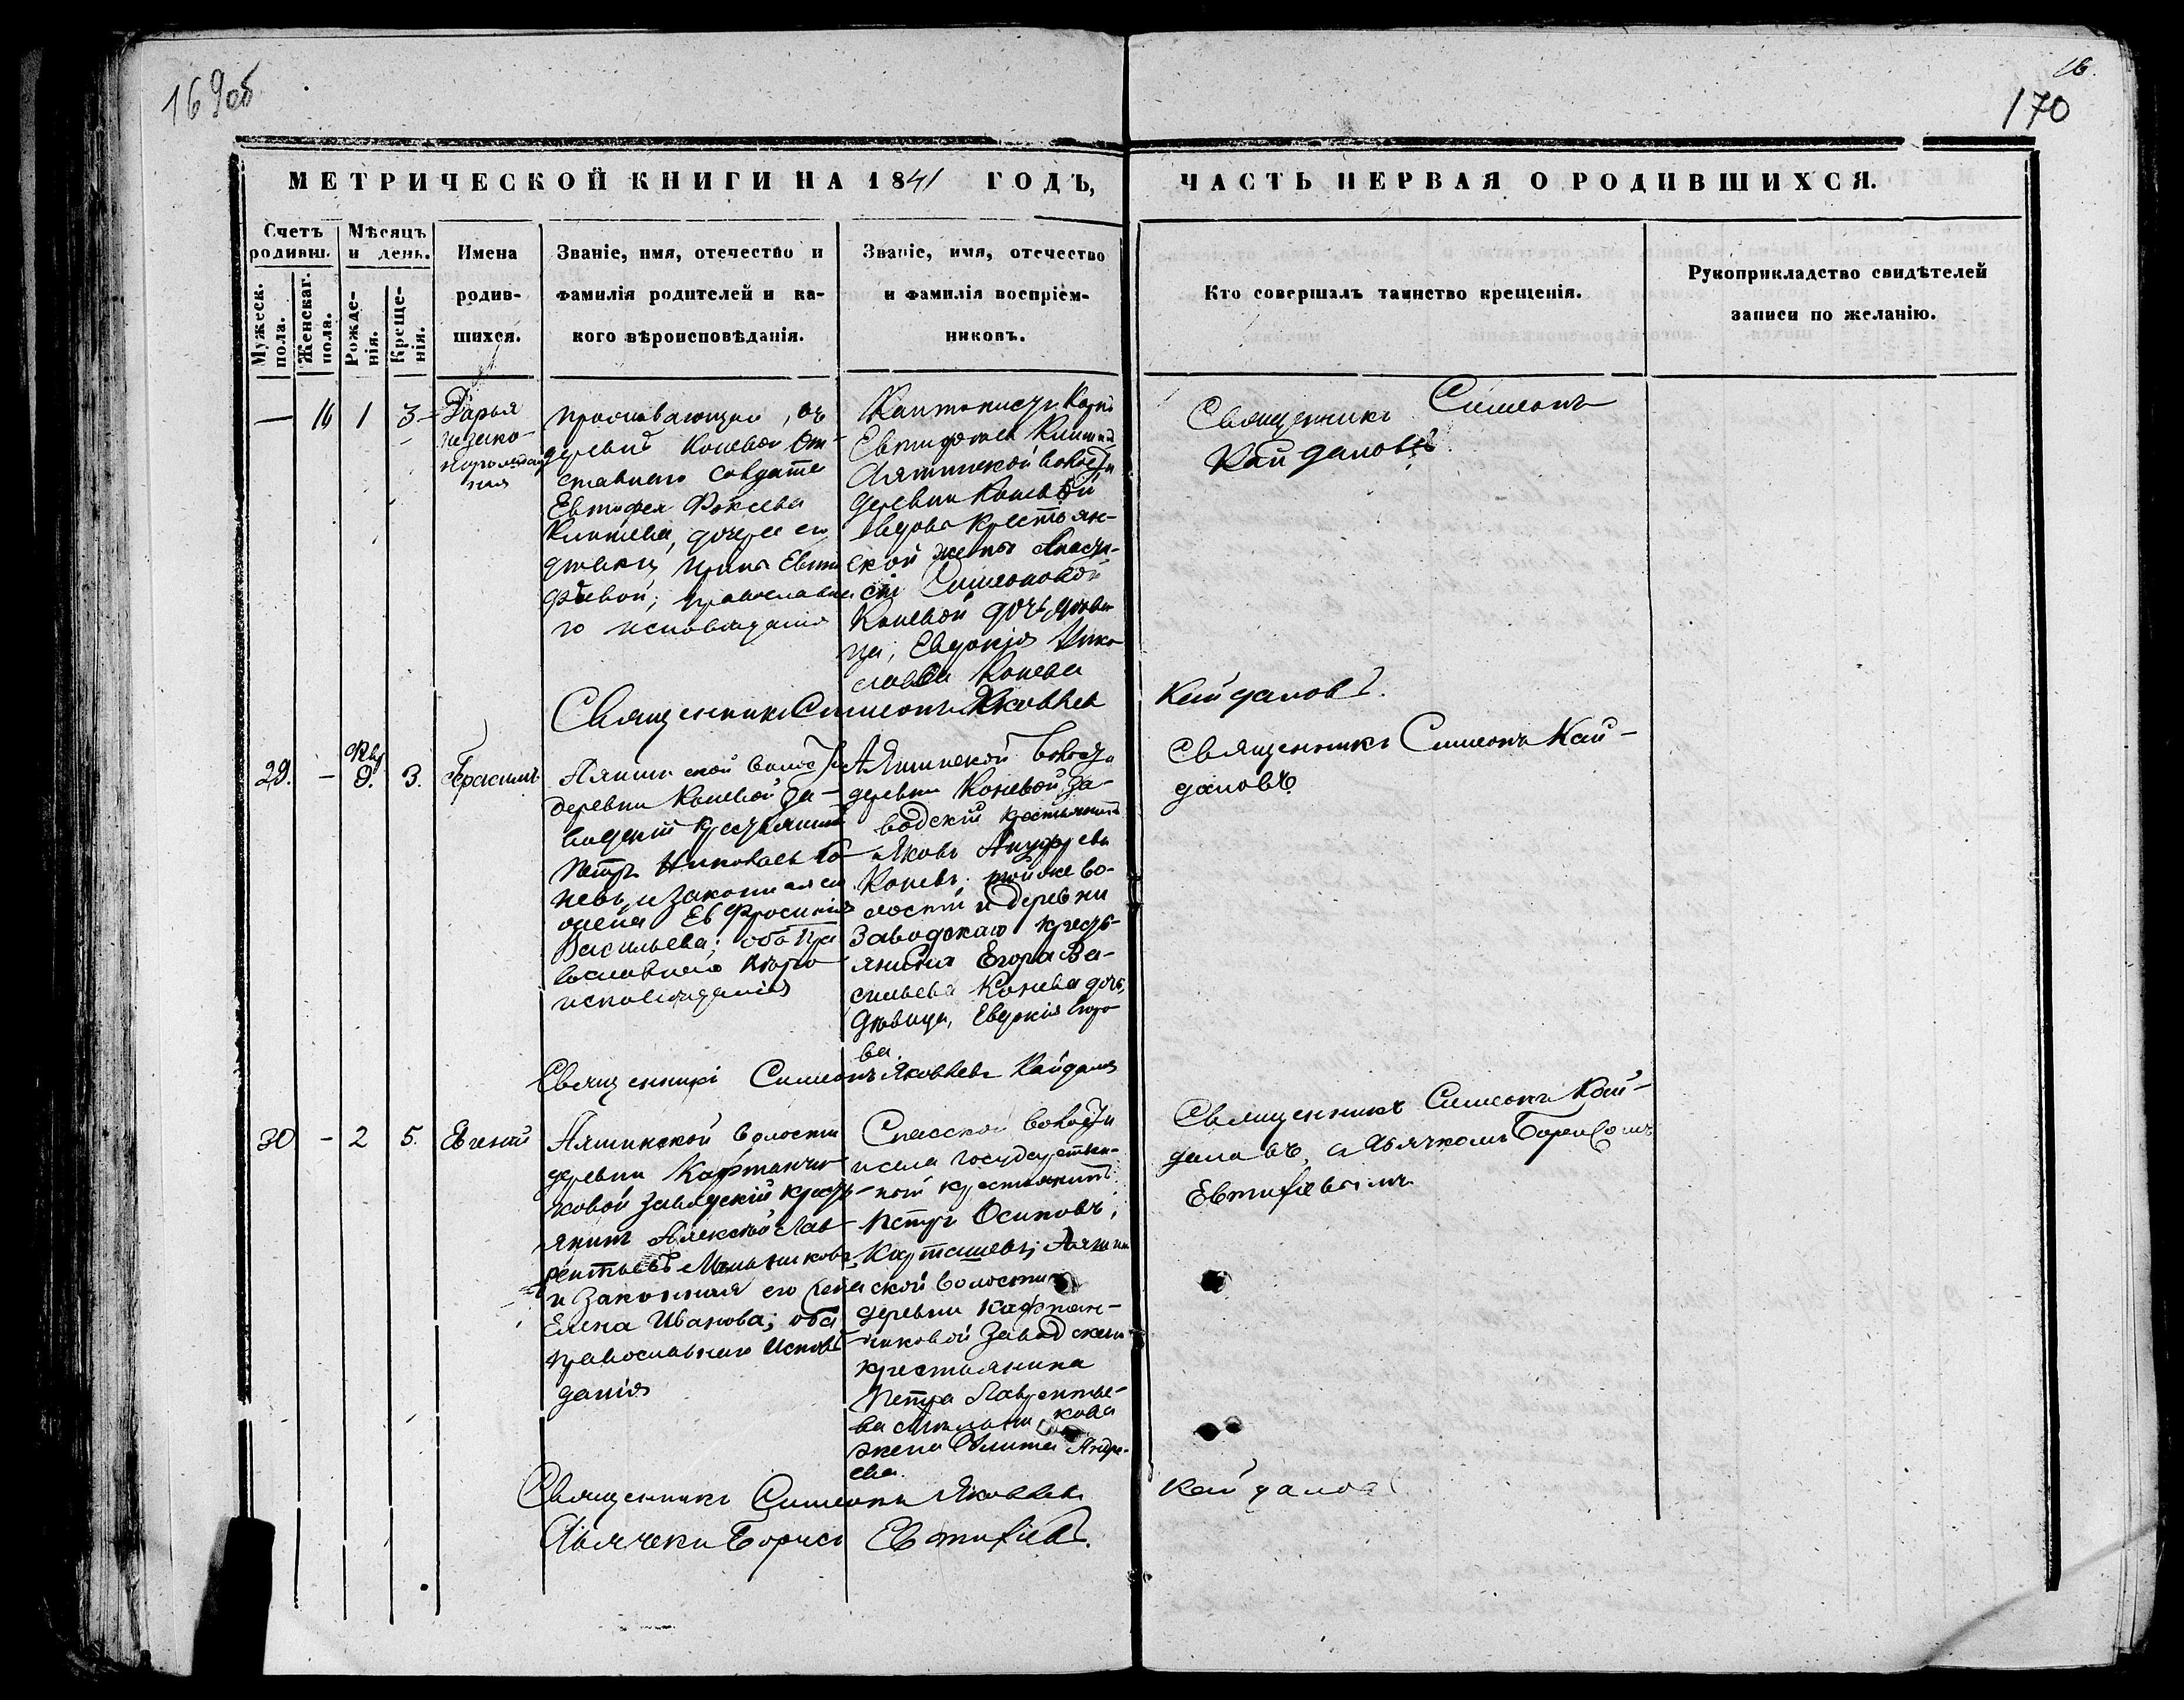 169об
16.
170
МЕТРИЧЕСКОЙ КНИГИ НА 1841 ГОДЪ,
ЧАСТЬ ПЕРВАЯ О РОДИВШИХСЯ.
Счетъ родивш.
Мужеск. пола.
Женскаг. пола.
Мѣсяцъ и день.
Рожде-нія.
Креще-нія.
Имена
родив-
шихся.
Званіе, имя, отечество и
фамилія родителей и ка-
кого вѣроисповѣданія.
Званіе, имя, отечество
и фамилія воспріем-
никовъ.
Кто совершалъ таинство крещенія.
Рукоприкладство свидѣтелей
записи по желанію.
— 16 1 3
Дарья
незако-
деревнѣ Коневой От-
ставнаго Солдата
Евтифея
дочери его
православна
го исповѣданія
Кантонистъ
Евтифеев
Аятинской волости
деревни Коневой
вдова крестьян-
ской жены Анаста-
сіи Симеоновой
Коневой дочь дѣви
ца, Евдокія Нико
лаева Конева
Священникъ Симеонъ
Кайдаловъ
Священникъ Симеонъ Яковлевъ Кайдаловъ.
29. — 9. 3. Герасимъ
волости
деревни Коневой за-
водскій крестьянинъ
Петръ Николаевъ Ко-
невъ, и законная его
жена Евфросинія
Васильева; оба пра
вославнаго вѣро
исповѣданія
Аятинской волости
деревни Коневой за-
водскій крестьянинъ
Яковъ Ануфріевъ
Коневъ. той же во-
лости и деревни
Заводскаго кресть-
янина Егора Ва-
сильева Конева дочь,
дѣвица, Евдокія Егоро-
ва.
Священникъ Симеонъ Кай-
даловъ
Священникъ Симеонъ Яковлевъ Кайдаловъ
30 — 2 5. Евгеній
Аятинской волости
деревни Кафтанчи-
ковой заводскій кресть-
янинъ Алексѣй Лав-
рентьевъ Мельниковъ
и законная его жена
Елена Иванова; оба
православнаго исповѣ
данія
Спасской волости
и села государствен-
ной крестьянинъ
Петръ Осиповъ
Карташевъ; Аятин
ской волости
деревни Кафтан-
чиковой Заводскаго
крестьянина
Петра Лаврентье-
ва Мельникова
жена Андре-
ева.
Священникъ Симеонъ Кай-
даловъ, с Дьячкомъ Борисомъ
Евтифіевымъ
Священникъ Симеонъ Яковлевъ Кайдаловъ
Дьячекъ Борисъ Евтифіевъ.